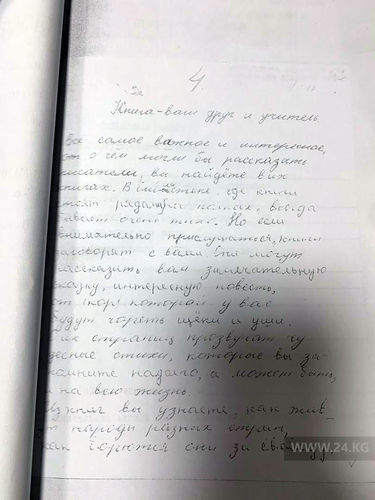 4.
За
Книга-ваш друг и учитель
Все самое важное и интересное,
о чём могли бы рассказать
писатели, вы найдёте в их
книгах. В библиотеке, где книги
стоят рядами на полках, всегда
бывает очень тихо. Но если
внимательно прислушаться, книги
заговорят с вами Они могут
рассказать вам занимательную
сказку, интересную повесть,
от которой у вас
будут гореть щёки и уши.
их страниц прозвучат чу
десные стихи, которые вы за-
помните надолго, а может быть,
и на всю жизнь.
Из книг вы узнаете, как жив-
ут народы разных стран,
как борются они за
WWW.24.KG